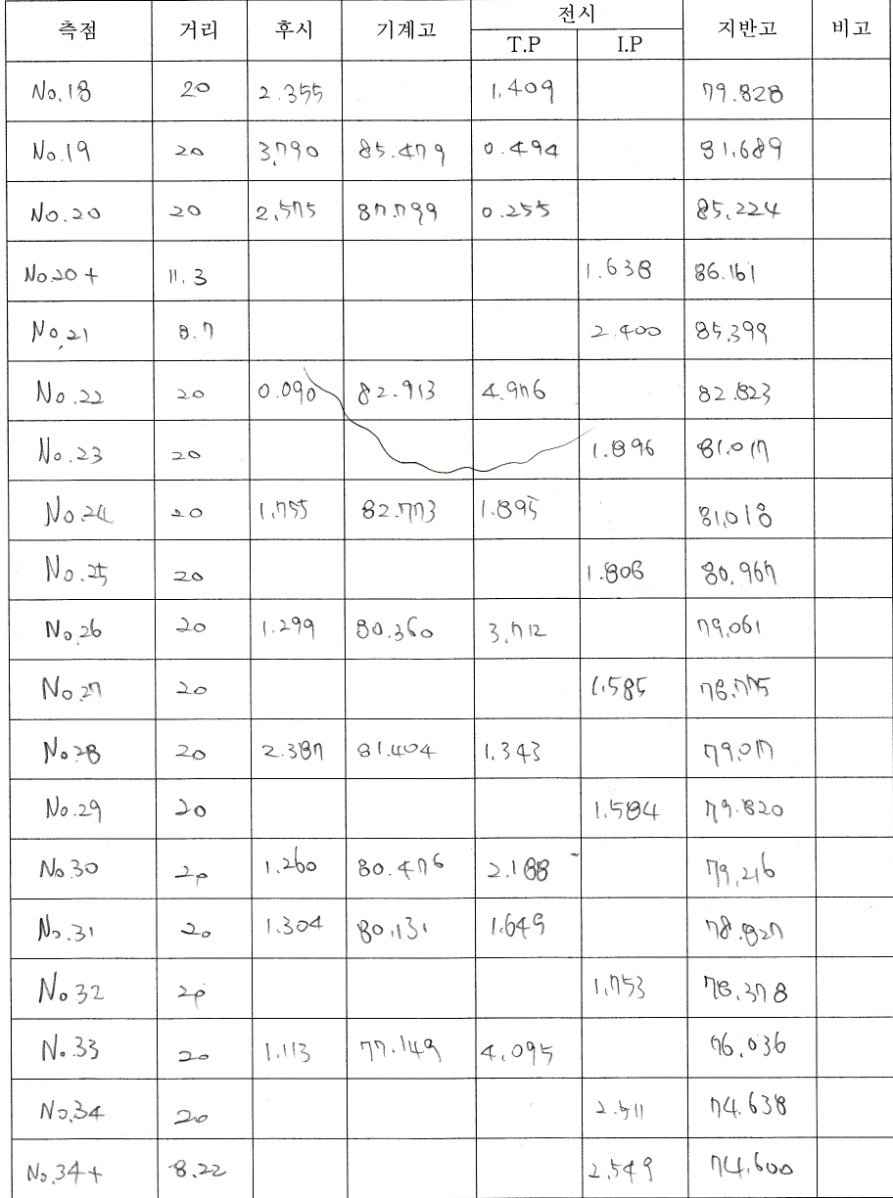 측점 거리 후시 기계고 전시 지반고 비고
T.P I.P
No.18 20 2.355 1.409 79.828
No.19 20 3.790 85.479 0.494 81.689
No.20 20 2.575 87.799 0.255 85.224
No.20+ 11.3 1.638 86.161
No.21 8.7 2.400 85.399
No.22 20 0.090 82.913 4.976 82.823
No.23 20 1.896 81.017
No.24 20 1.755 82.773 1.895 81.018
No.25 20 1.806 80.967
No.26 20 1.299 80.360 3.712 79.061
No.27 20 1.585 78.775
No.28 20 2.387 81.404 1.343 79.017
No.29 20 1.584 79.820
No.30 20 1.260 80.476 2.188 79.216
No.31 20 1.304 80.131 1.649 78.827
No.32 20 1.753 78.378
No.33 20 1.113 77.149 4.095 76.036
No.34 20 2.511 74.638
No.34+ 8.22 2.549 74.600